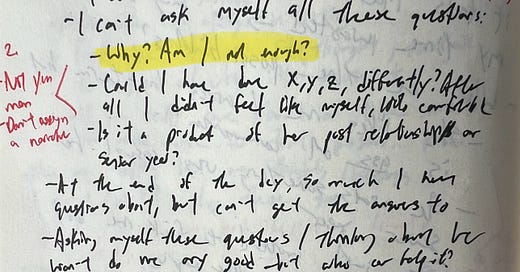 - I can't ask myself all these questions:
- Why? Am I not enough?
- Could I have done X, Y, Z, differently? After
all I didn't feel like myself, comfortable
- Is it a product of her past relationships or
senior year?
- At the end of the day, so much I have
questions about, but can't get the answers to
- Asking myself these questions / thinking about her
won't do me any good - but who can help it?
2.
- Not your
man
- Don't assign
a narrative